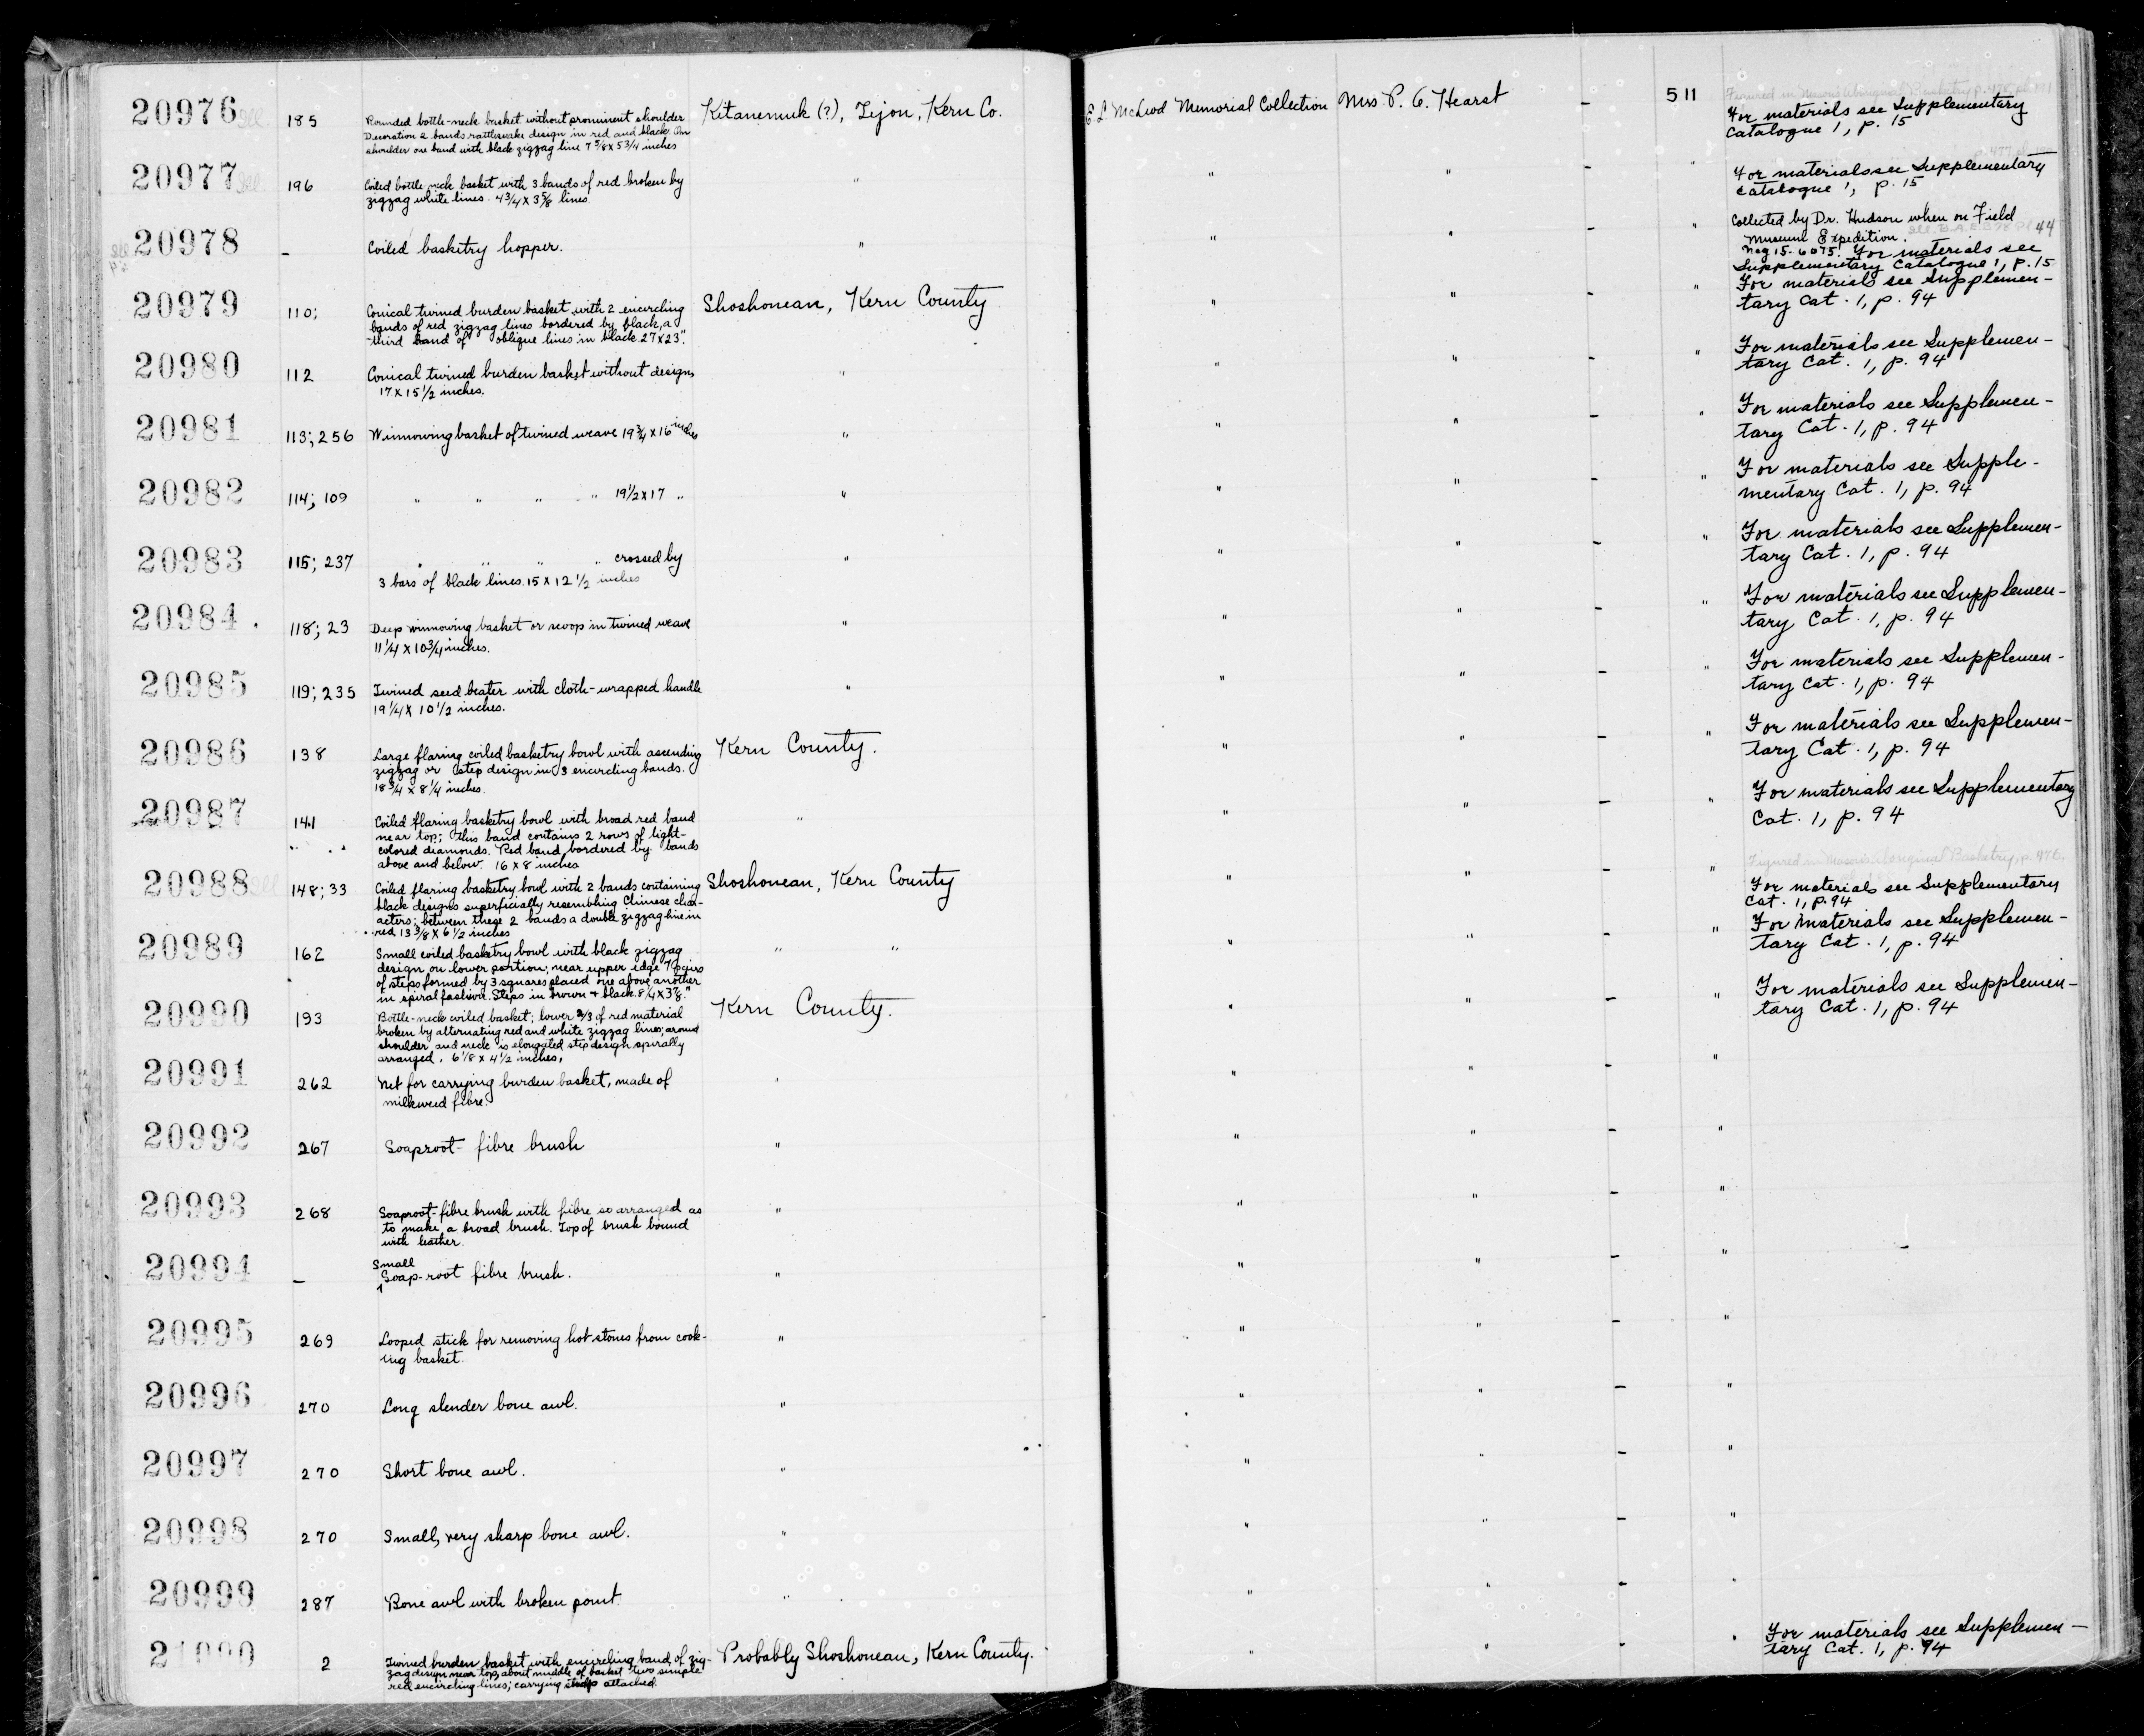 20976 185 Rounded bottle-neck basket without prominent shoulder Kitanemuk (?), Tejon, Kern Co. E. L. McLeod Memorial Collection Mrs. P. A. Hearst – 511
Decoration 2 bands rattlesnake design in red and black. On
shoulder one band with black zigzag line 7 5/8 x 5 3/4 inches
For materials see Supplementary
Catalogue 1, p. 15
20977 196 Coiled bottle neck basket with 3 bands of red broken by " " " – "
zigzag white lines. 4 3/4 x 3 5/8 lines.
For materials see Supplementary
Catalogue 1, p. 15
20978 – Coiled basketry hopper. " " " – "
Collected by Dr. Hudson when on Field
Museum Expedition.
Neg 15-6075. For materials see
Supplementary Catalogue 1, p. 15
20979 110; Conical twined burden basket with 2 encircling Shoshonean, Kern County " " – "
bands of red zigzag lines bordered by black, a
third band of oblique lines in black. 27 x 23".
For materials see Supplemen-
tary Cat. 1, p. 94
20980 112 Conical twined burden basket without designs " " " – "
17 x 15 1/2 inches.
For materials see Supplemen-
tary Cat. 1, p. 94
20981 113; 256 Winnowing basket of twined weave 19 3/4 x 16 inches " " " – "
For materials see Supplemen-
tary Cat. 1, p. 94
20982 114; 109 " " " " 19 1/2 x 17 " " " " – "
For materials see Supple-
mentary Cat. 1, p. 94
20983 115; 237 " " " " crossed by " " " – "
3 bars of black lines. 15 x 12 1/2 inches
For materials see Supplemen-
tary Cat. 1, p. 94
20984 118; 23 Deep winnowing basket or scoop in twined weave " " " – "
11 1/4 x 10 3/4 inches.
For materials see Supplemen-
tary Cat. 1, p. 94
20985 119; 235 Twined seed beater with cloth-wrapped handle " " " – "
19 1/4 x 10 1/2 inches.
For materials see Supplemen-
tary Cat. 1, p. 94
20986 138 Large flaring coiled basketry bowl with ascending Kern County. " " – "
zigzag or step design in 3 encircling bands.
18 3/4 x 8 1/4 inches.
For materials see Supplemen-
tary Cat. 1, p. 94
20987 141 Coiled flaring basketry bowl with broad red band " " " – "
near top; this band contains 2 rows of light-
colored diamonds. Red band bordered by bands
above and below. 16 x 8 inches
For materials see Supplementary
Cat. 1, p. 94
20988 148; 33 Coiled flaring basketry bowl with 2 bands containing Shoshonean, Kern County " " – "
black designs superficially resembling Chinese char-
acters; between these 2 bands a double zigzag line in
red 13 3/8 x 6 1/2 inches
Figured in Mason's Aboriginal Basketry, p. 476.
For materials see Supplementary
Cat. 1, p. 94
20989 162 Small coiled basketry bowl with black zigzag " " " " – "
design on lower portion; near upper edge 7 pairs
of steps formed by 3 squares placed one above another
in spiral fashion. Steps in brown + black. 8 1/4 x 3 7/8."
For Materials see Supplemen-
tary Cat. 1, p. 94
20990 193 Bottle-neck coiled basket; lower 2/3 of red material Kern County. " " – "
broken by alternating red and white zigzag lines; around
shoulder and neck is elongated step design spirally
arranged. 6 1/8 x 4 1/2 inches.
For materials see Supplemen-
tary Cat. 1, p. 94
20991 262 Net for carrying burden basket, made of " " " – "
milkweed fibre.
20992 267 Soaproot-fibre brush " " " – "
20993 268 Soaproot-fibre brush with fibre so arranged as " " " – "
to make a broad brush. Top of brush bound
with leather.
20994 – Small Soap-root fibre brush. " " " – " –
20995 269 Looped stick for removing hot stones from cook- " " " – "
ing basket.
20996 270 Long slender bone awl. " " " – "
20997 270 Short bone awl. " " " – "
20998 270 Small, very sharp bone awl. " " " – "
20999 287 Bone awl with broken point. " " " – "
21000 2 Twined burden basket with encircling band of zig- Probably Shoshonean, Kern County. " " – "
zag design near top, about middle of basket two simple
red encircling lines; carrying attached.
For materials see Supplemen-
tary Cat. 1, p. 94